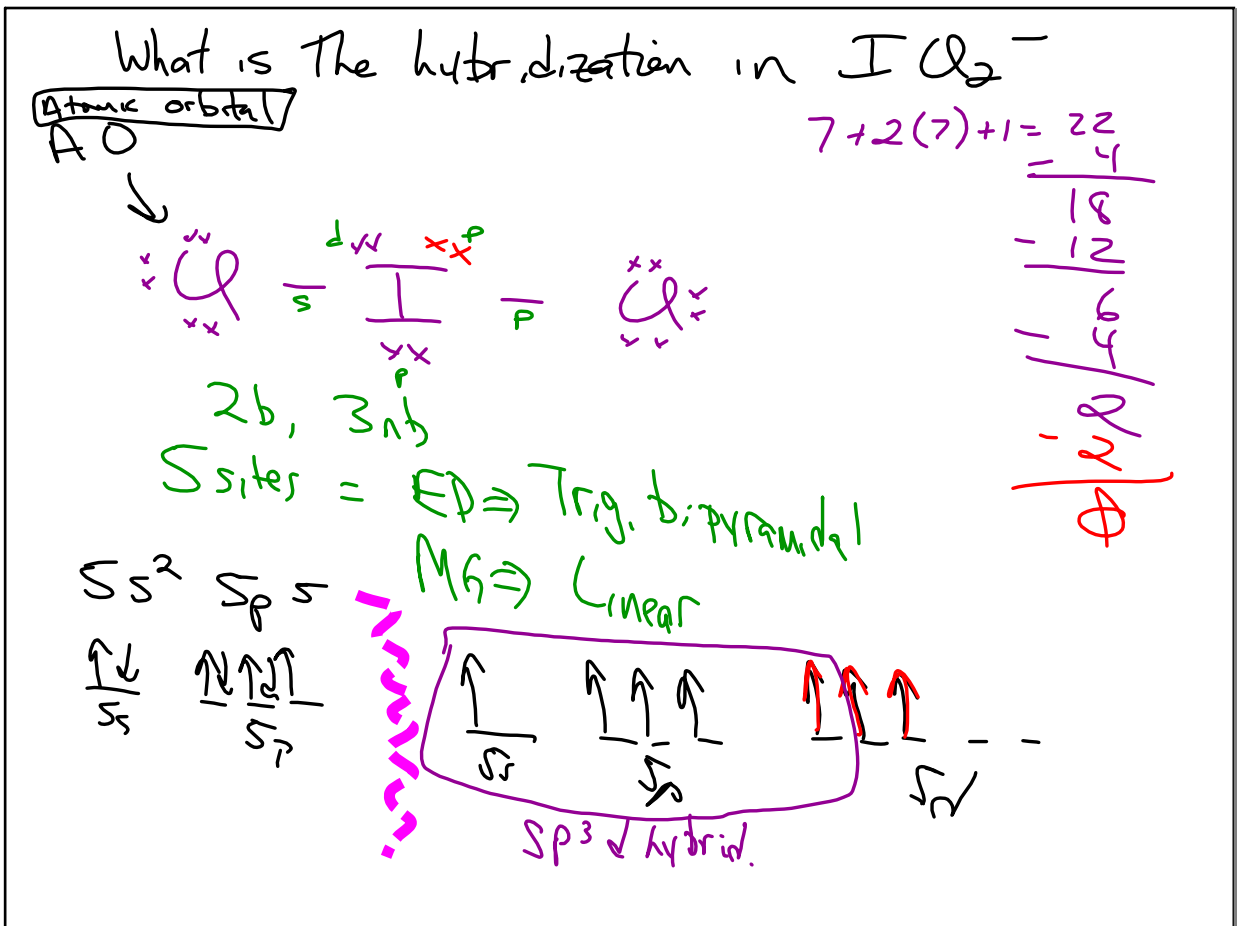 What is The hybridization in ICl2-
Atomic orbital
AO
7+2(7)+1= 22
- 4
18
- 12
6
- 4
2
- 2
0
d xx xx p
Cl - I - Cl
s p
xx
p
2b, 3nb
5 sites = ED ⇒ Trig. bipyramidal
MG ⇒ Linear
5s² 5p⁵
5s 5p
5s 5p 5d
sp³d hybrid.